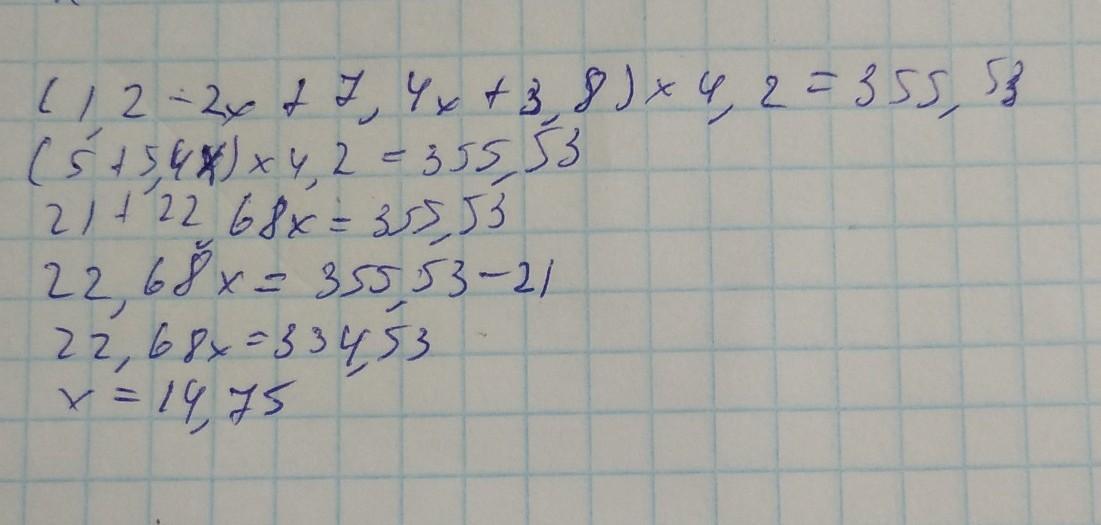 (1,2-2x+7,4x+3,8)×4,2=355,53
(5+5,4x)×4,2=355,53
21+22,68x=355,53
22,68x=355,53-21
22,68x=334,53
x=14,75